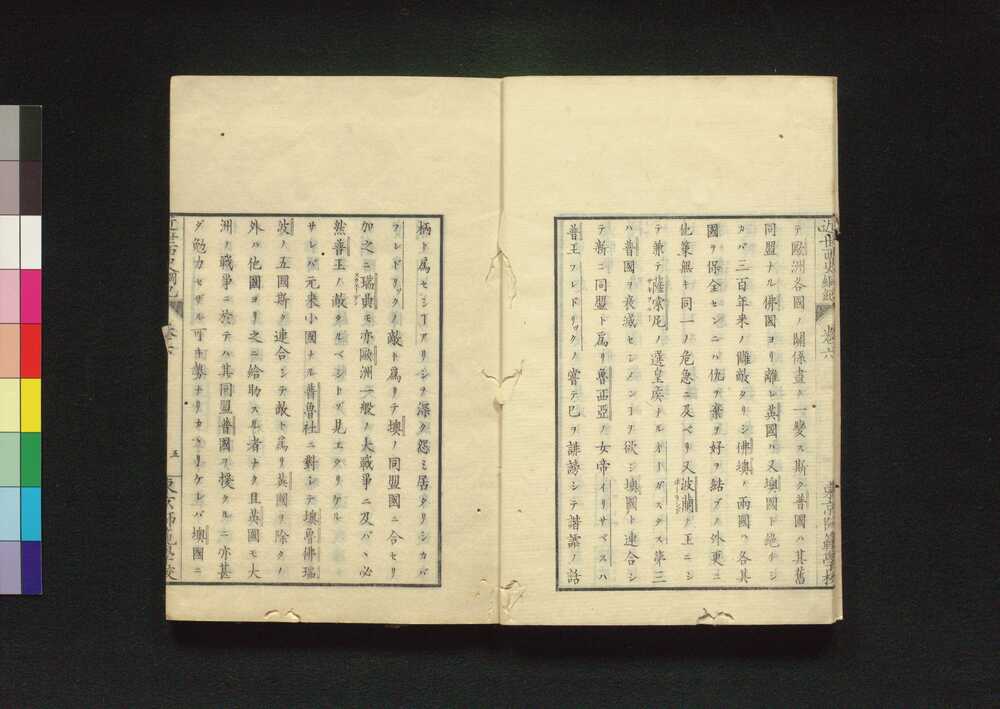 近世西史綱紀 卷六 東京師範學校
テ歐洲各國ノ關係盡ク一變ス斯ク普國ハ其舊
同盟ナル佛國ヨリ離レ英國ハ又墺國ト絶チシ
カバ三百年来ノ讐敵タリシ佛墺ノ兩國ハ各其
國ヲ保全センニハ仇ヲ棄テ好ヲ結ブノ外更ニ
他策無キ同一ノ危急ニ及ベリ又波蘭ノ王ニシ
テ兼テ薩索尼ノ選皇矦ナルオーガスタス第三
ハ普國ヲ衰滅センノヿヲ欲シ墺國ト連合シ
テ新ニ同盟ト爲リ魯西亞ノ女帝イリサベスハ
普王フレドリックノ嘗テ己ヲ誹謗シテ諧謔ノ話
柄ト爲セシヿアリシヲ深ク怨ミ居タリシカバ
フレドリックノ敵ト爲リテ墺ノ同盟國ニ合セリ
加之ニ瑞典モ亦歐洲一般ノ大戰爭ニ及バヽ必
然普王ノ敵タルベシトゾ見エタリケル
サレバ元來小國ナル普魯社ニ對シテ墺魯佛瑞
波ノ五国斯ク連合シテ敵ト爲リ英國ヲ除クノ
外ハ他國ヨリ之ニ給助スル者ナク且英國モ大
洲ノ戰爭ニ於テハ其同盟普國ヲ援クルニ亦甚
ダ勉力セザル可キ勢ナリ
ケレバ墺國ニ
卷六 五 東京師範學校